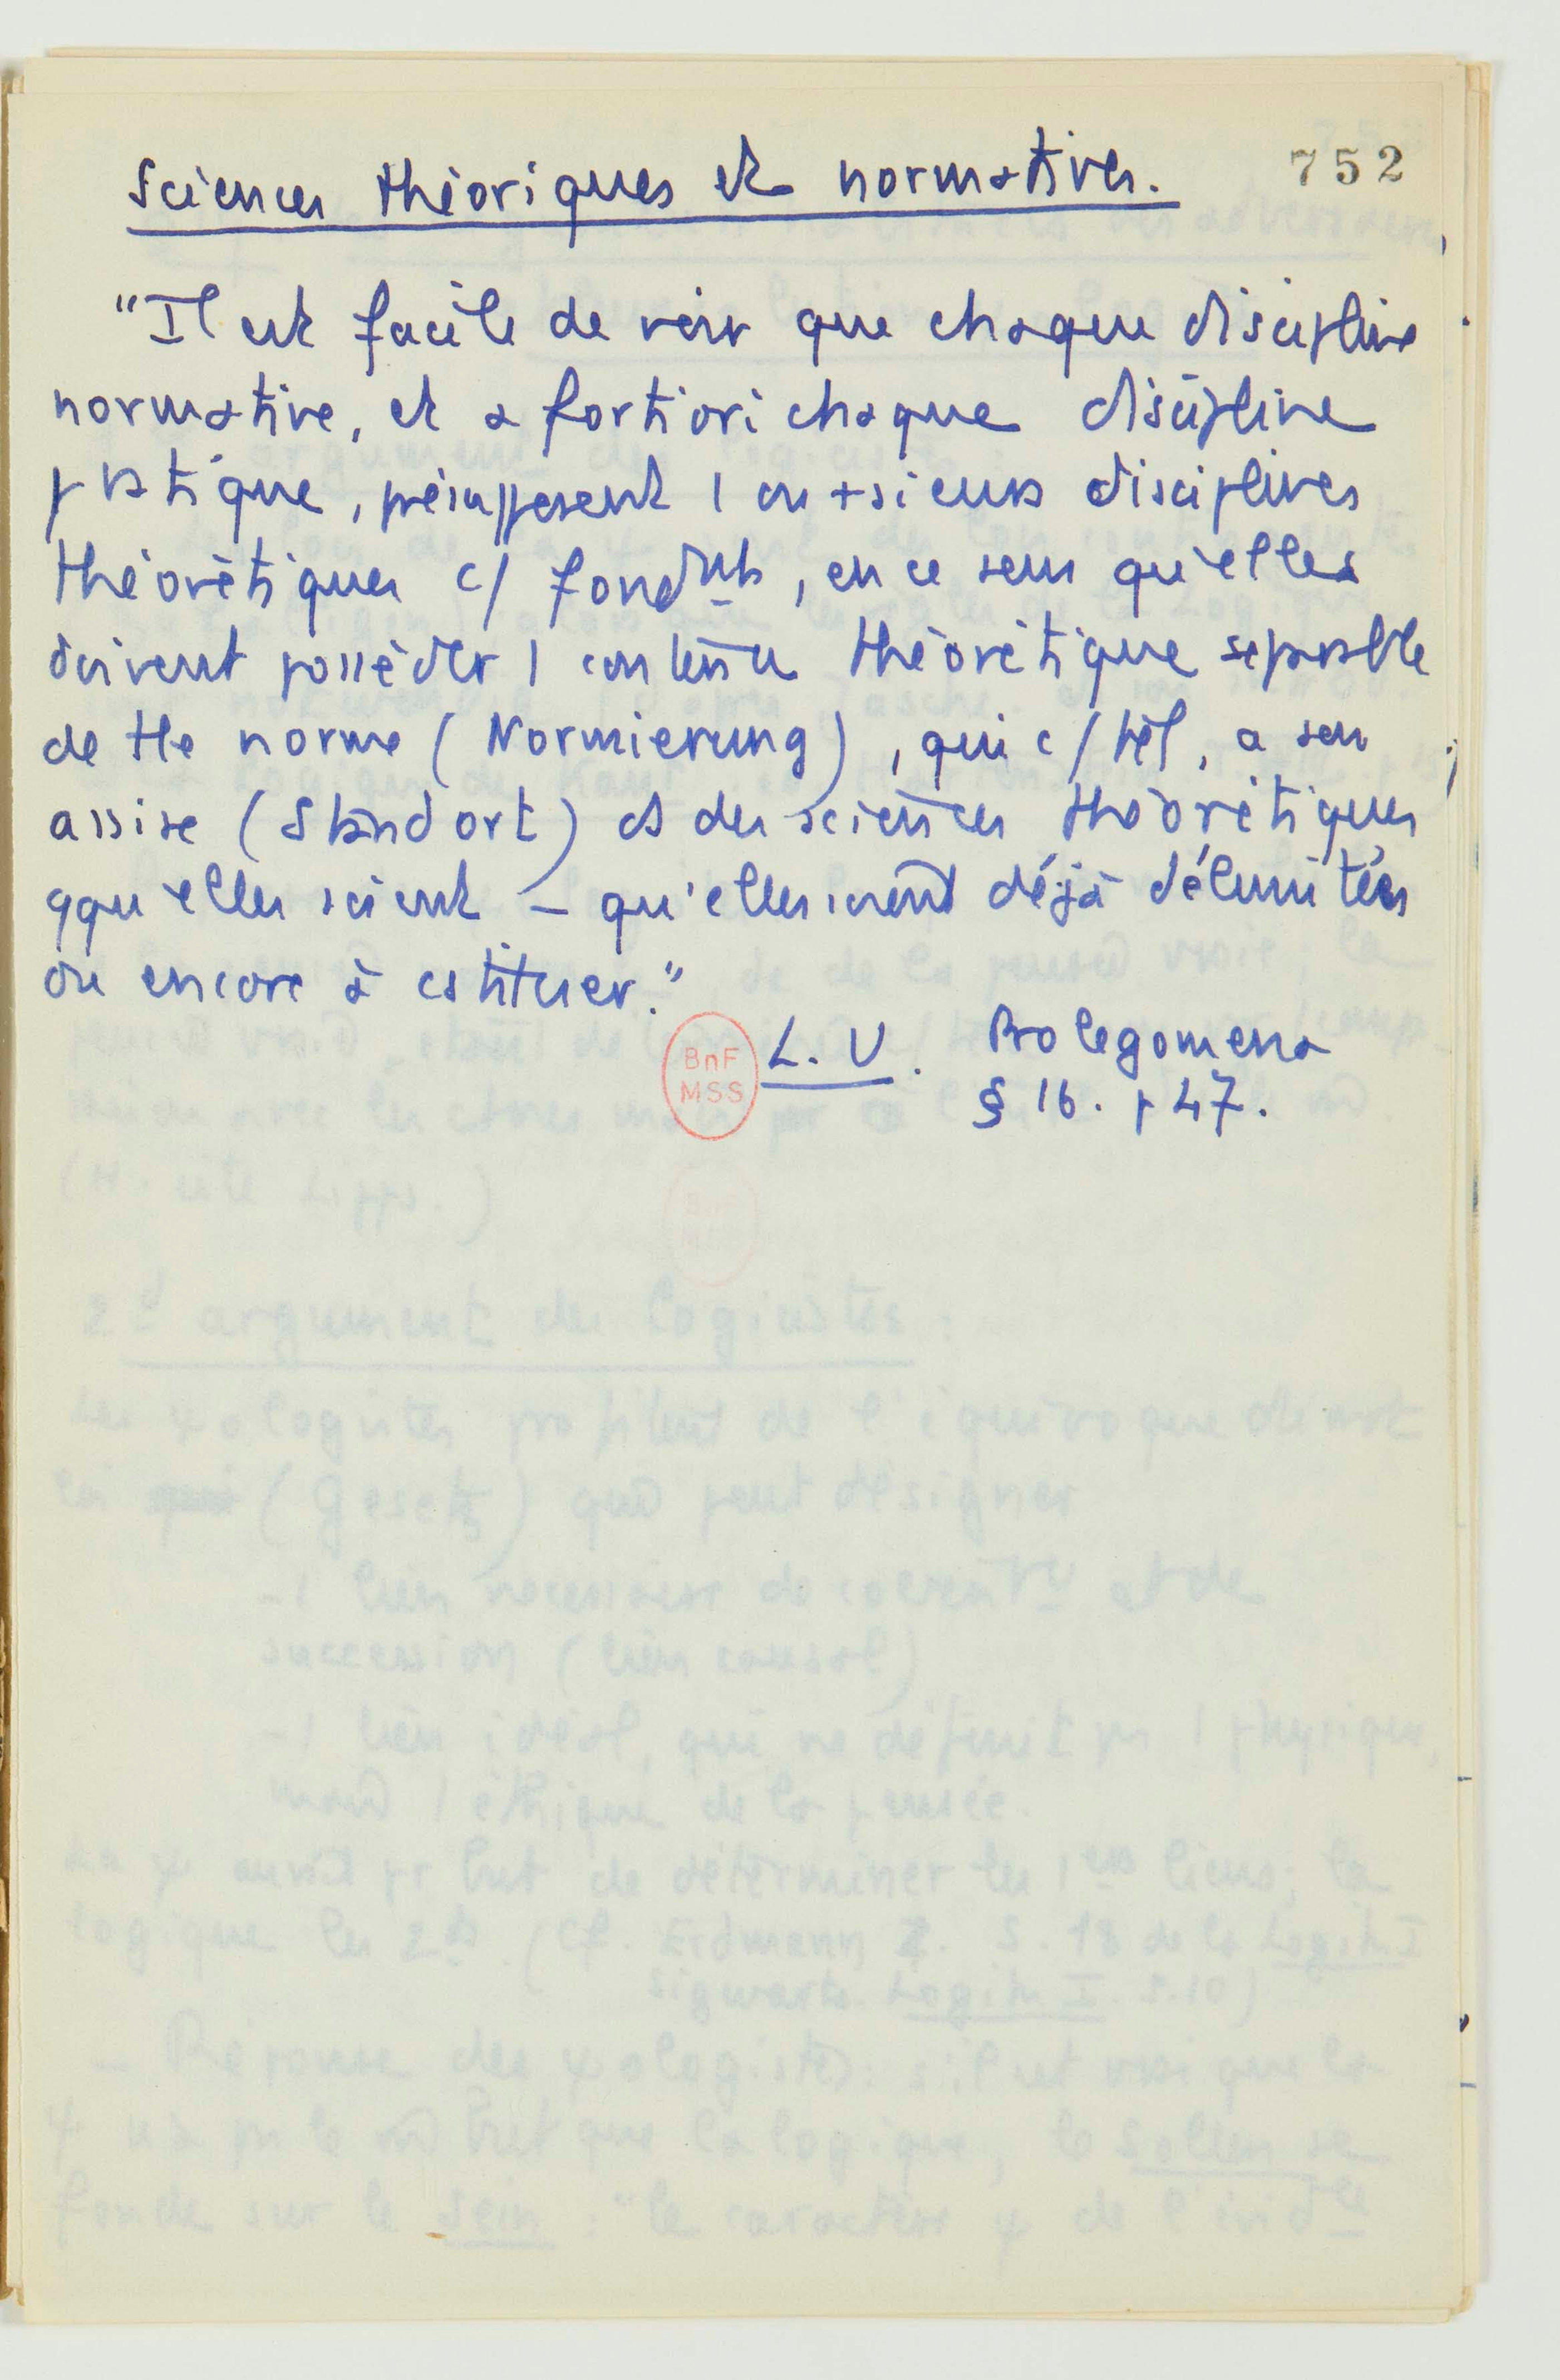 Sciences théoriques et normatives.
752
"Il est facile de voir que chaque discipline
normative, et a fortiori chaque discipline
pratique, présupposent 1 ou +sieurs disciplines
théorétiques c/ fondmts, en ce sens qu'elles
doivent posséder 1 contenu théorétique séparable
de tte norme (Normierung), qui c/ tel, a son
assise (Standort) ds des sciences théorétiques
qqu'elles soient – qu'elles soient déjà délimitées
ou encore à cstituer."
L. U. Prolegomena
§ 16. p 47.
BnF
MSS